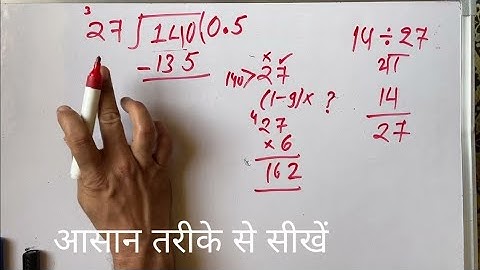 3
27 ) 140 ( 0.5
- 135
× ✓
140 > 27
(1-9)x ?
4
27
× 6
162
14 ÷ 27
या
14
27
आसान तरीके से सीखें